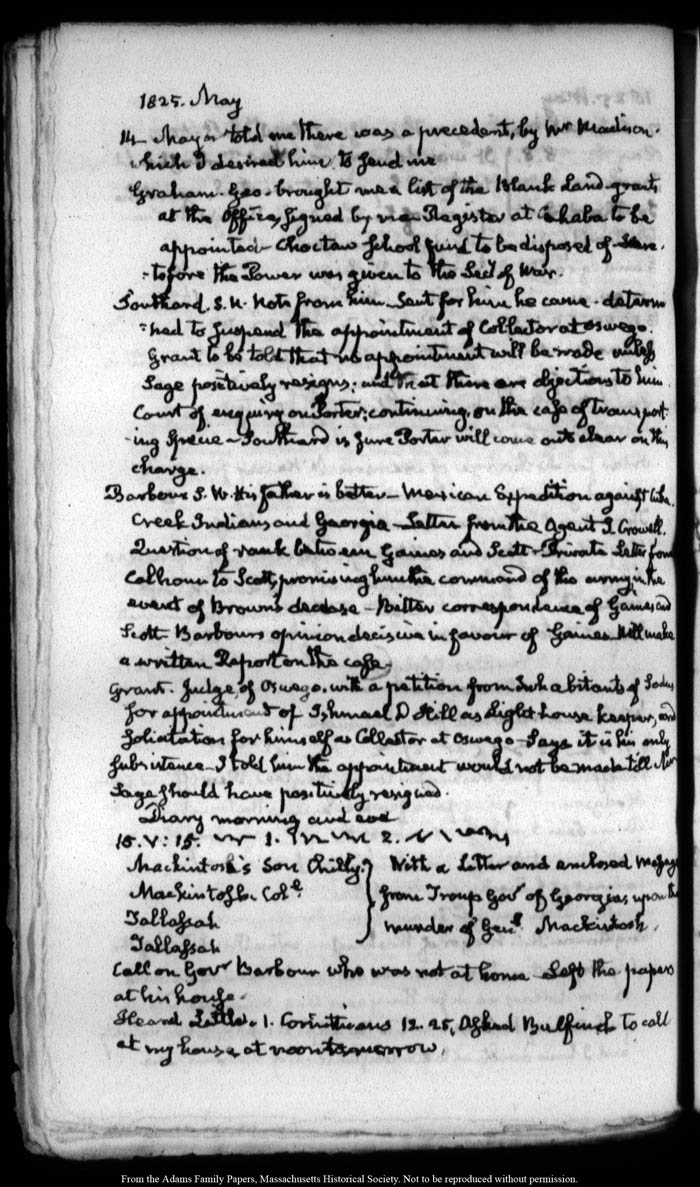 1825. May
14. Mayor told me there was a precedent, by Mr Madison.
which I desired him to send me
Graham. Geo. brought me a list of the Blank Land-grants
at the Office, signed by me. Register at Cahaba to be
appointed - Choctaw School fund to be disposed of -
:tofore the Power was given to the Secy of War.
Southard. S. N. Note from him - Sent for him he came - determ
:ned to suspend the appointment of Collector at Oswego.
Grant to be told that no appointment will be made unless
Sage positively resigns; and that there are objections to him
Court of enquiry on Porter; continuing, on the case of transport
-ing specie - Southard is sure Porter will come out clear on this
charge.
Barbour S. W. His father is better - Mexican Expedition against Cuba.
Creek Indians and Georgia - Letter from the Agent J. Crowell.
Question of rank between Gaines and Scott - Private Letter from
Calhoun to Scott, promising him the command of the army in the
event of Brown's decease - Bitter correspondence of Gaines and
Scott - Barbour's opinion decisive in favour of Gaines. Will make
a written Report on the case.
Grant. Judge, of Oswego. with a petition from Inhabitants of
for appointment of Ishmael D Hill as Light house keeper, and
solicitation for himself as Collector at Oswego - Says it is his only
subsistence - I told him the appointment would not be made till
Sage should have positively resigned.
Diary morning and eve
15. V: 15. 1. 2.
Mackintosh's Son Chilly. } With a Letter and enclosed
Mackintosh. Col. from Troup Govr of Georgia, upon the
Tallassah murder of Genl Mackintosh.
Tallassah
Call on Govr Barbour who was not at home - Left the papers
at his house.
Heard Little. 1. Corinthians 12. 25. Asked Bulfinch to call
at my house at noon tomorrow.
From the Adams Family Papers, Massachusetts Historical Society. Not to be reproduced without permission.